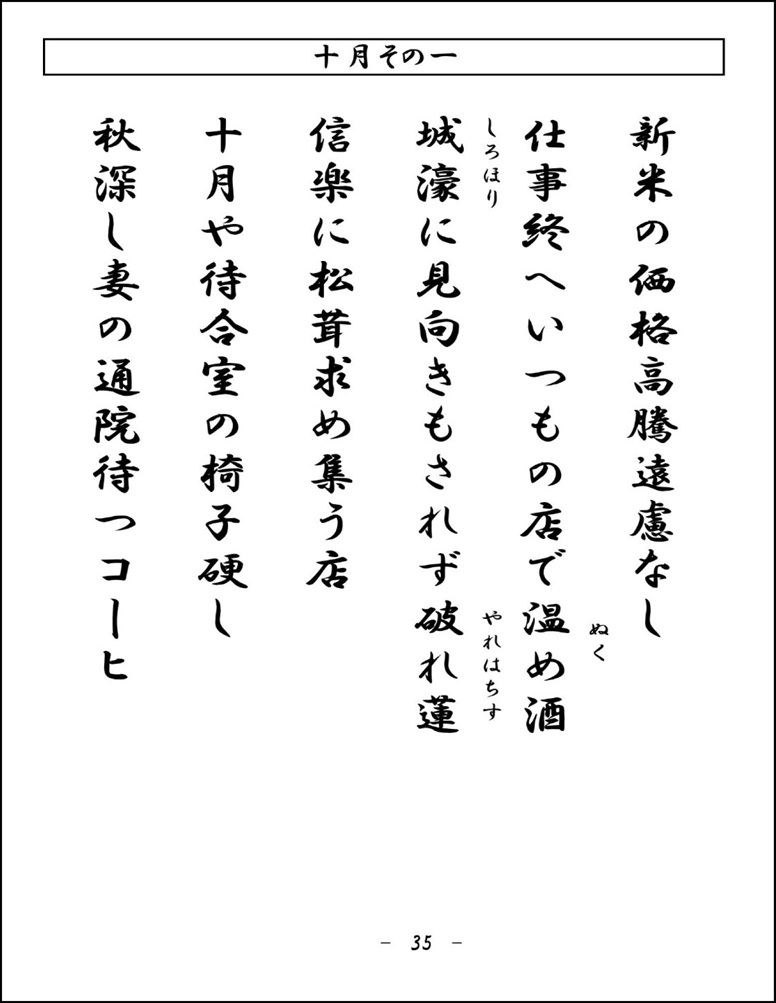 十月その一
新米の価格高騰遠慮なし
仕事終へいつもの店で温め酒
ぬく
城濠に見向きもされず破れ蓮
しろほり
やれはちす
信楽に松茸求め集う店
十月や待合室の椅子硬し
秋深し妻の通院待つコーヒ
- 35 -